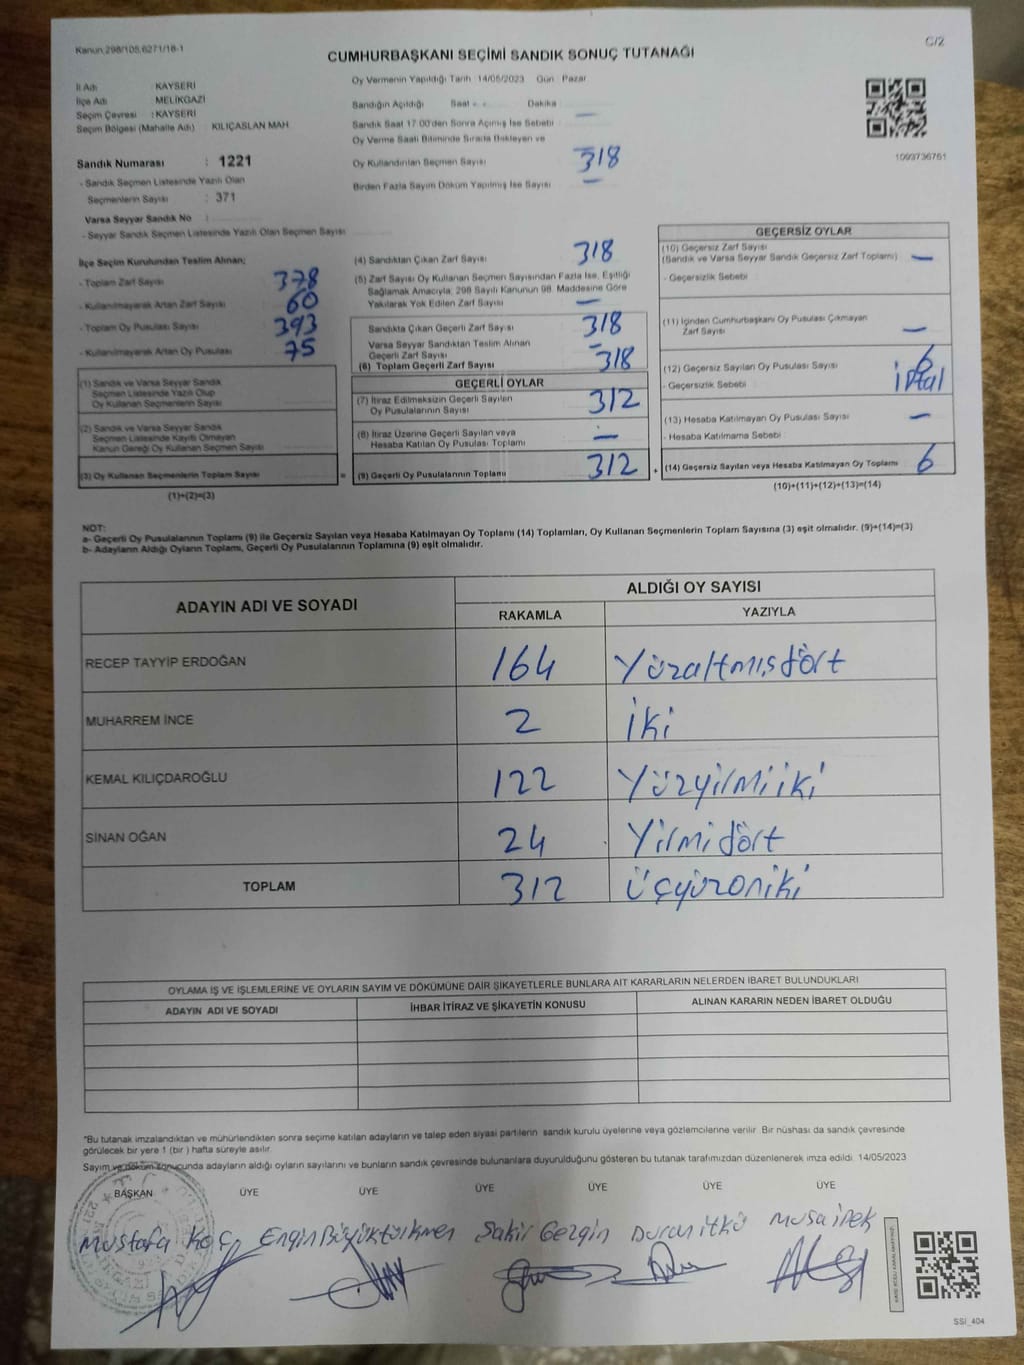 Kanun,298/105,6271/18-1
C/2
CUMHURBAŞKANI SEÇİMİ SANDIK SONUÇ TUTANAĞI
İl Adı KAYSERİ
İlçe Adı MELİKGAZİ
Seçim Çevresi : KAYSERİ
Seçim Bölgesi (Mahalle Adı) KILIÇASLAN MAH
Sandık Numarası : 1221
- Sandık Seçmen Listesinde Yazılı Olan
Seçmenlerin Sayısı : 371
Varsa Seyyar Sandık No :
- Seyyar Sandık Seçmen Listesinde Yazılı Olan Seçmen Sayısı
Oy Vermenin Yapıldığı Tarih :14/05/2023 Gün : Pazar
Sandığın Açıldığı Saat Dakika
Sandık Saat 17:00'den Sonra Açılmış İse Sebebi —
Oy Verme Saati Bitiminde Sırada Bekleyen ve
Oy Kullandırılan Seçmen Sayısı 318
Birden Fazla Sayım Döküm Yapılmış İse Sayısı —
1093736761
İlçe Seçim Kurulundan Teslim Alınan;
- Toplam Zarf Sayısı 378
- Kullanılmayarak Artan Zarf Sayısı 60
- Toplam Oy Pusulası Sayısı 393
- Kullanılmayarak Artan Oy Pusulası 75
(1) Sandık ve Varsa Seyyar Sandık
Seçmen Listesinde Yazılı Olup
Oy Kullanan Seçmenlerin Sayısı
(2) Sandık ve Varsa Seyyar Sandık
Seçmen Listesinde Kayıtlı Olmayan
Kanun Gereği Oy Kullanan Seçmen Sayısı
(3) Oy Kullanan Seçmenlerin Toplam Sayısı =
(1)+(2)=(3)
(4) Sandıktan Çıkan Zarf Sayısı 318
(5) Zarf Sayısı Oy Kullanan Seçmen Sayısından Fazla İse, Eşitliği
Sağlamak Amacıyla, 298 Sayılı Kanunun 98. Maddesine Göre
Yakılarak Yok Edilen Zarf Sayısı —
Sandıkta Çıkan Geçerli Zarf Sayısı 318
Varsa Seyyar Sandıktan Teslim Alınan
Geçerli Zarf Sayısı —
(6) Toplam Geçerli Zarf Sayısı 318
GEÇERLİ OYLAR
(7) İtiraz Edilmeksizin Geçerli Sayılan
Oy Pusulalarının Sayısı 312
(8) İtiraz Üzerine Geçerli Sayılan veya
Hesaba Katılan Oy Pusulası Toplamı —
(9) Geçerli Oy Pusulalarının Toplamı 312 +
GEÇERSİZ OYLAR
(10) Geçersiz Zarf Sayısı
(Sandık ve Varsa Seyyar Sandık Geçersiz Zarf Toplamı) —
- Geçersizlik Sebebi
(11) İçinden Cumhurbaşkanı Oy Pusulası Çıkmayan
Zarf Sayısı —
(12) Geçersiz Sayılan Oy Pusulası Sayısı 6
- Geçersizlik Sebebi iptal
(13) Hesaba Katılmayan Oy Pusulası Sayısı —
- Hesaba Katılmama Sebebi
(14) Geçersiz Sayılan veya Hesaba Katılmayan Oy Toplamı 6
(10)+(11)+(12)+(13)=(14)
NOT:
a- Geçerli Oy Pusulalarının Toplamı (9) ile Geçersiz Sayılan veya Hesaba Katılmayan Oy Toplamı (14) Toplamları, Oy Kullanan Seçmenlerin Toplam Sayısına (3) eşit olmalıdır. (9)+(14)=(3)
b- Adayların Aldığı Oyların Toplamı, Geçerli Oy Pusulalarının Toplamına (9) eşit olmalıdır.
ADAYIN ADI VE SOYADI ALDIĞI OY SAYISI
RAKAMLA YAZIYLA
RECEP TAYYİP ERDOĞAN 164 Yüzaltmışdört
MUHARREM İNCE 2 iki
KEMAL KILIÇDAROĞLU 122 Yüzyirmiiki
SİNAN OĞAN 24 Yirmidört
TOPLAM 312 üçyüzoniki
OYLAMA İŞ VE İŞLEMLERİNE VE OYLARIN SAYIM VE DÖKÜMÜNE DAİR ŞİKAYETLERLE BUNLARA AİT KARARLARIN NELERDEN İBARET BULUNDUKLARI
ADAYIN ADI VE SOYADI İHBAR İTİRAZ VE ŞİKAYETİN KONUSU ALINAN KARARIN NEDEN İBARET OLDUĞU
*Bu tutanak imzalandıktan ve mühürlendikten sonra seçime katılan adayların ve talep eden siyasi partilerin sandık kurulu üyelerine veya gözlemcilerine verilir. Bir nüshası da sandık çevresinde
görülecek bir yere 1 (bir ) hafta süreyle asılır.
Sayım ve döküm sonucunda adayların aldığı oyların sayılarını ve bunların sandık çevresinde bulunanlara duyurulduğunu gösteren bu tutanak tarafımızdan düzenlenerek imza edildi. 14/05/2023
BAŞKAN ÜYE ÜYE ÜYE ÜYE ÜYE ÜYE
Mustafa Koç Engin Büyüktürkmen Sakir Gezgin Duran itkü Musa ipek
SSI_404